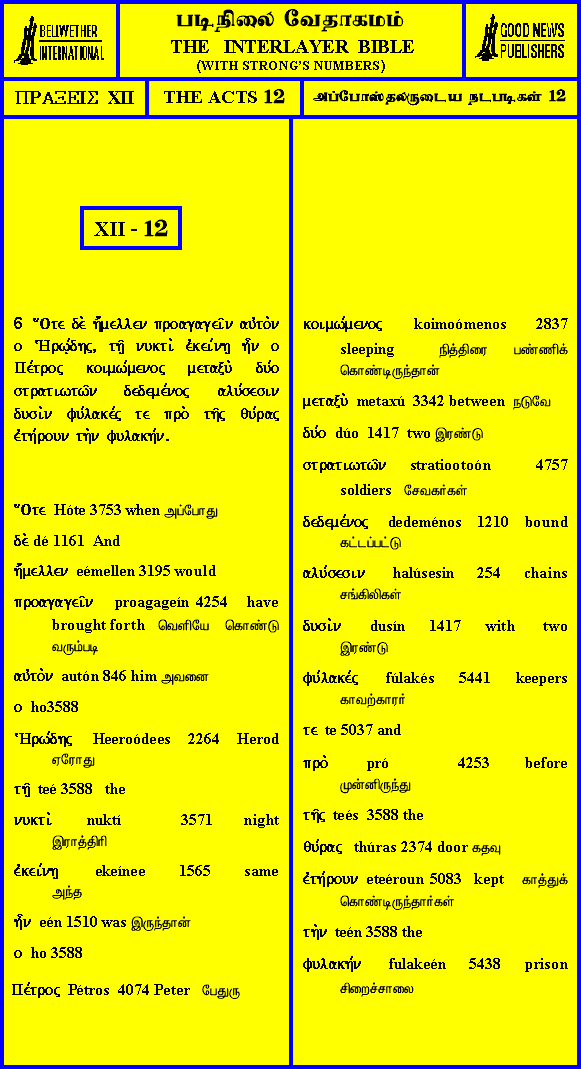 BELLWETHER
INTERNATIONAL
படிநிலை வேதாகமம்
THE INTERLAYER BIBLE
(WITH STRONG'S NUMBERS)
GOOD NEWS
PUBLISHERS
ΠΡΑΞΕΙΣ XII
THE ACTS 12
அப்போஸ்தலருடைய நடபடிகள் 12
XII - 12
6 Ὅτε δὲ ἤμελλεν προαγαγεῖν αὐτὸν
ο Ἡρῴδης, τῇ νυκτὶ ἐκείνῃ ἦν ο
Πέτρος κοιμώμενος μεταξὺ δύο
στρατιωτῶν δεδεμένος αλύσεσιν
δυσὶν φύλακές τε πρὸ τῆς θύρας
ἐτήρουν τὴν φυλακήν.
Ὅτε Hóte 3753 when அப்போது
δὲ dé 1161 And
ἤμελλεν eémellen 3195 would
προαγαγεῖν proagageín 4254 have
brought forth வெளியே கொண்டு
வரும்படி
αὐτὸν autón 846 him அவனை
ο ho3588
Ἡρώδης Heeroódees 2264 Herod
ஏரோது
τῇ teé 3588 the
νυκτὶ nuktí 3571 night
இராத்திரி
ἐκείνῃ ekeínee 1565 same
அந்த
ἦν eén 1510 was இருந்தான்
ο ho 3588
Πέτρος Pétros 4074 Peter பேதுரு
κοιμώμενος koimoómenos 2837
sleeping நித்திரை பண்ணிக்
கொண்டிருந்தான்
μεταξὺ metaxú 3342 between நடுவே
δύο dúo 1417 two இரண்டு
στρατιωτῶν stratiootoón 4757
soldiers சேவகர்கள்
δεδεμένος dedeménos 1210 bound
கட்டப்பட்டு
αλύσεσιν halúsesin 254 chains
சங்கிலிகள்
δυσὶν dusín 1417 with two
இரண்டு
φύλακές fúlakés 5441 keepers
காவற்காரர்
τε te 5037 and
πρὸ pró 4253 before
முன்னிருந்து
τῆς teés 3588 the
θύρας thúras 2374 door கதவு
ἐτήρουν eteéroun 5083 kept காத்துக்
கொண்டிருந்தார்கள்
τὴν teén 3588 the
φυλακήν fulakeén 5438 prison
சிறைச்சாலை